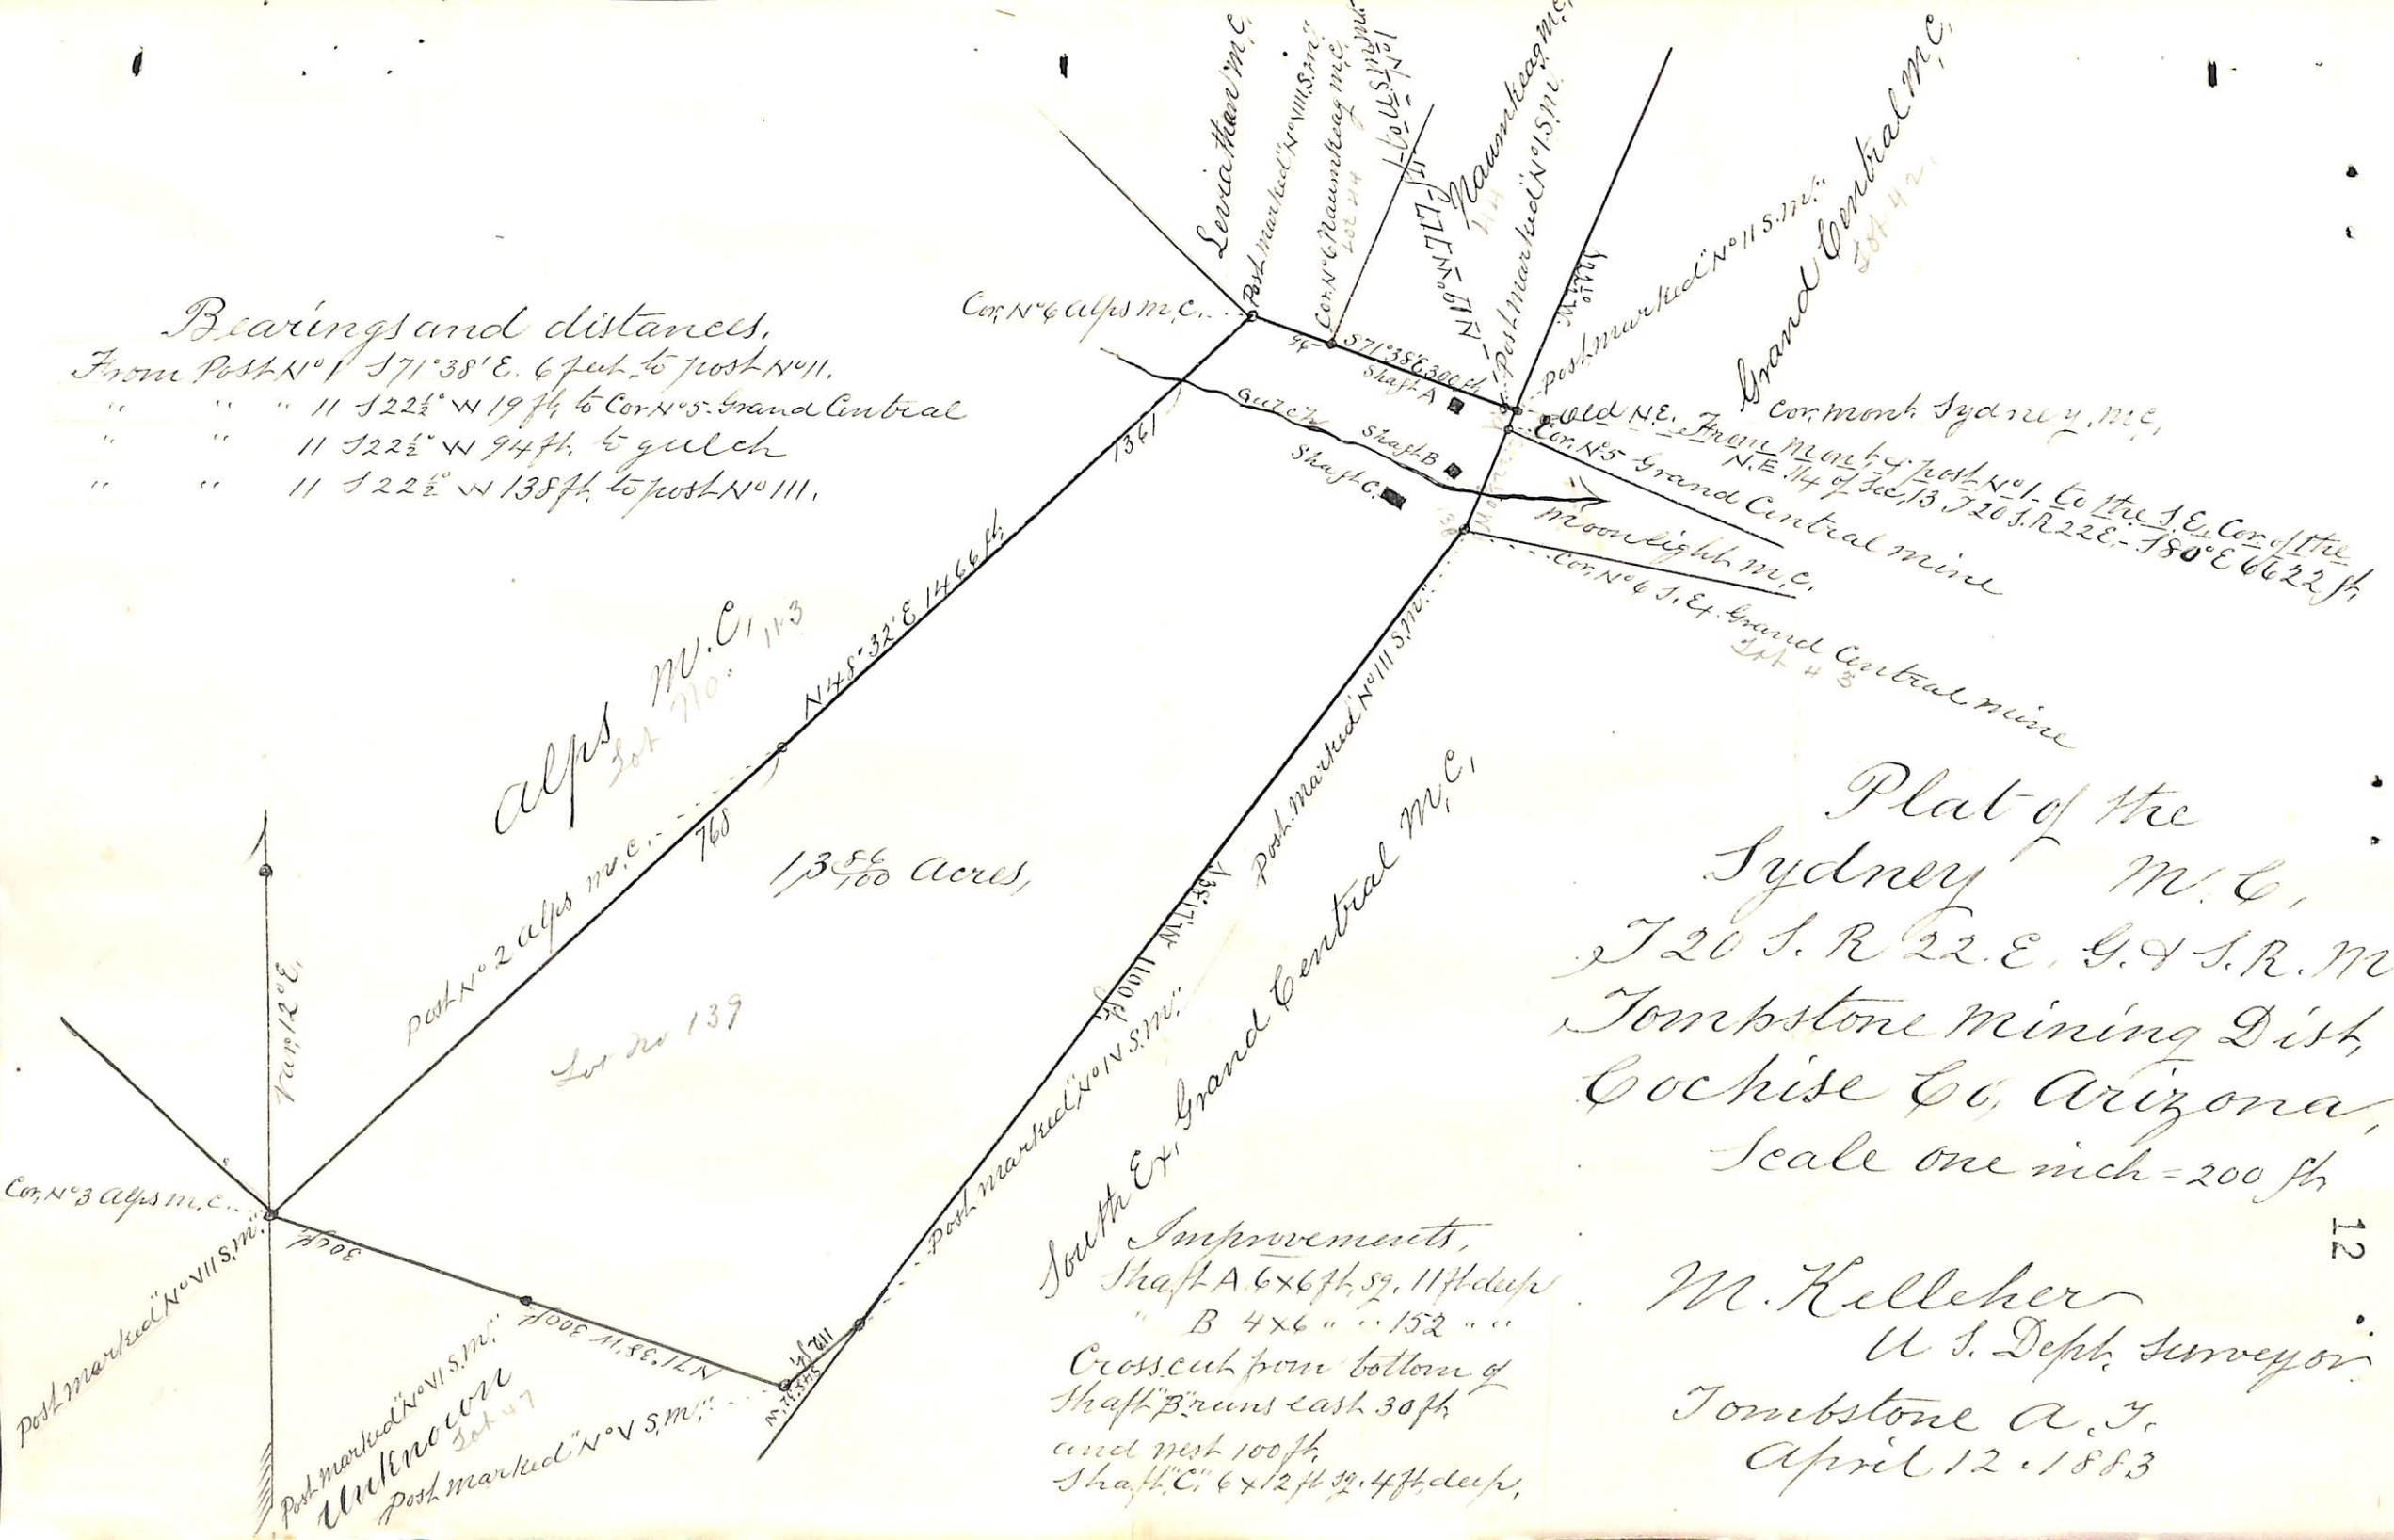 Bearings and distances.
From Post No 1 S71°38'E. 6 feet to post No 11.
" " " 11 S22½° W 19 ft. to Cor No 5. Grand Central
" " 11 S22½° W 94 ft. to gulch
" " 11 S22½° W 138 ft. to post No 111.
Leviathan M.C.
Post marked "No VIII S.M."
Cor. No 6 Naumkeag M.C.
Lot 44
Naumkeag M.C.
44
Post marked "No 1 S.M."
Post marked "No 11 S.M."
Grand Central M.C.
Lot 42
Cor. No 6 Alps M.C.
96
S71°38'E. 300 ft.
Shaft A
Gulch
Shaft B
Shaft C.
Cor. mont. Sydney, M.C.
Old N.E.
From Mont. of post No 1. to the S.E. Cor. of the
N.E. 1/4 of Sec. 13 T20 S. R22E. - S80°E 6622 ft.
Cor. No 5 Grand Central mine
Moonlight M.C.
138
Cor. No 6 S. Ex. Grand Central mine
Lot 43
1361
N48°32'E 1466 ft.
Alps M.C.
Lot No. 113
768
Post No 2 Alps M.C.
13 86/100 Acres,
Lot No 139
Var. 12°E.
Post marked "No 111 S.M."
S38°17'W 1100 ft.
South Ex. Grand Central M.C.
Post marked "No IV S.M."
Cor. No 3 Alps M.C.
Post marked "No VII S.M."
300 ft.
N71°38'W 300 ft.
112 ft.
Post marked "No VI S.M."
Unknown
Lot 47
Post marked "No V S.M."
Improvements.
Shaft A 6x6 ft. sq. 11 ft deep
" B 4x6 " " 152 " "
Crosscut from bottom of
Shaft "B" runs east 30 ft.
and west 100 ft.
Shaft "C" 6x12 ft sq. 4 ft. deep.
Plat of the
Sydney M.C.
T20 S. R 22. E. G. & S. R. M
Tombstone Mining Dist,
Cochise Co, Arizona,
Scale one inch = 200 ft
12
M. Kelleher
U S. Dept. Surveyor
Tombstone A.T.
April 12. 1883